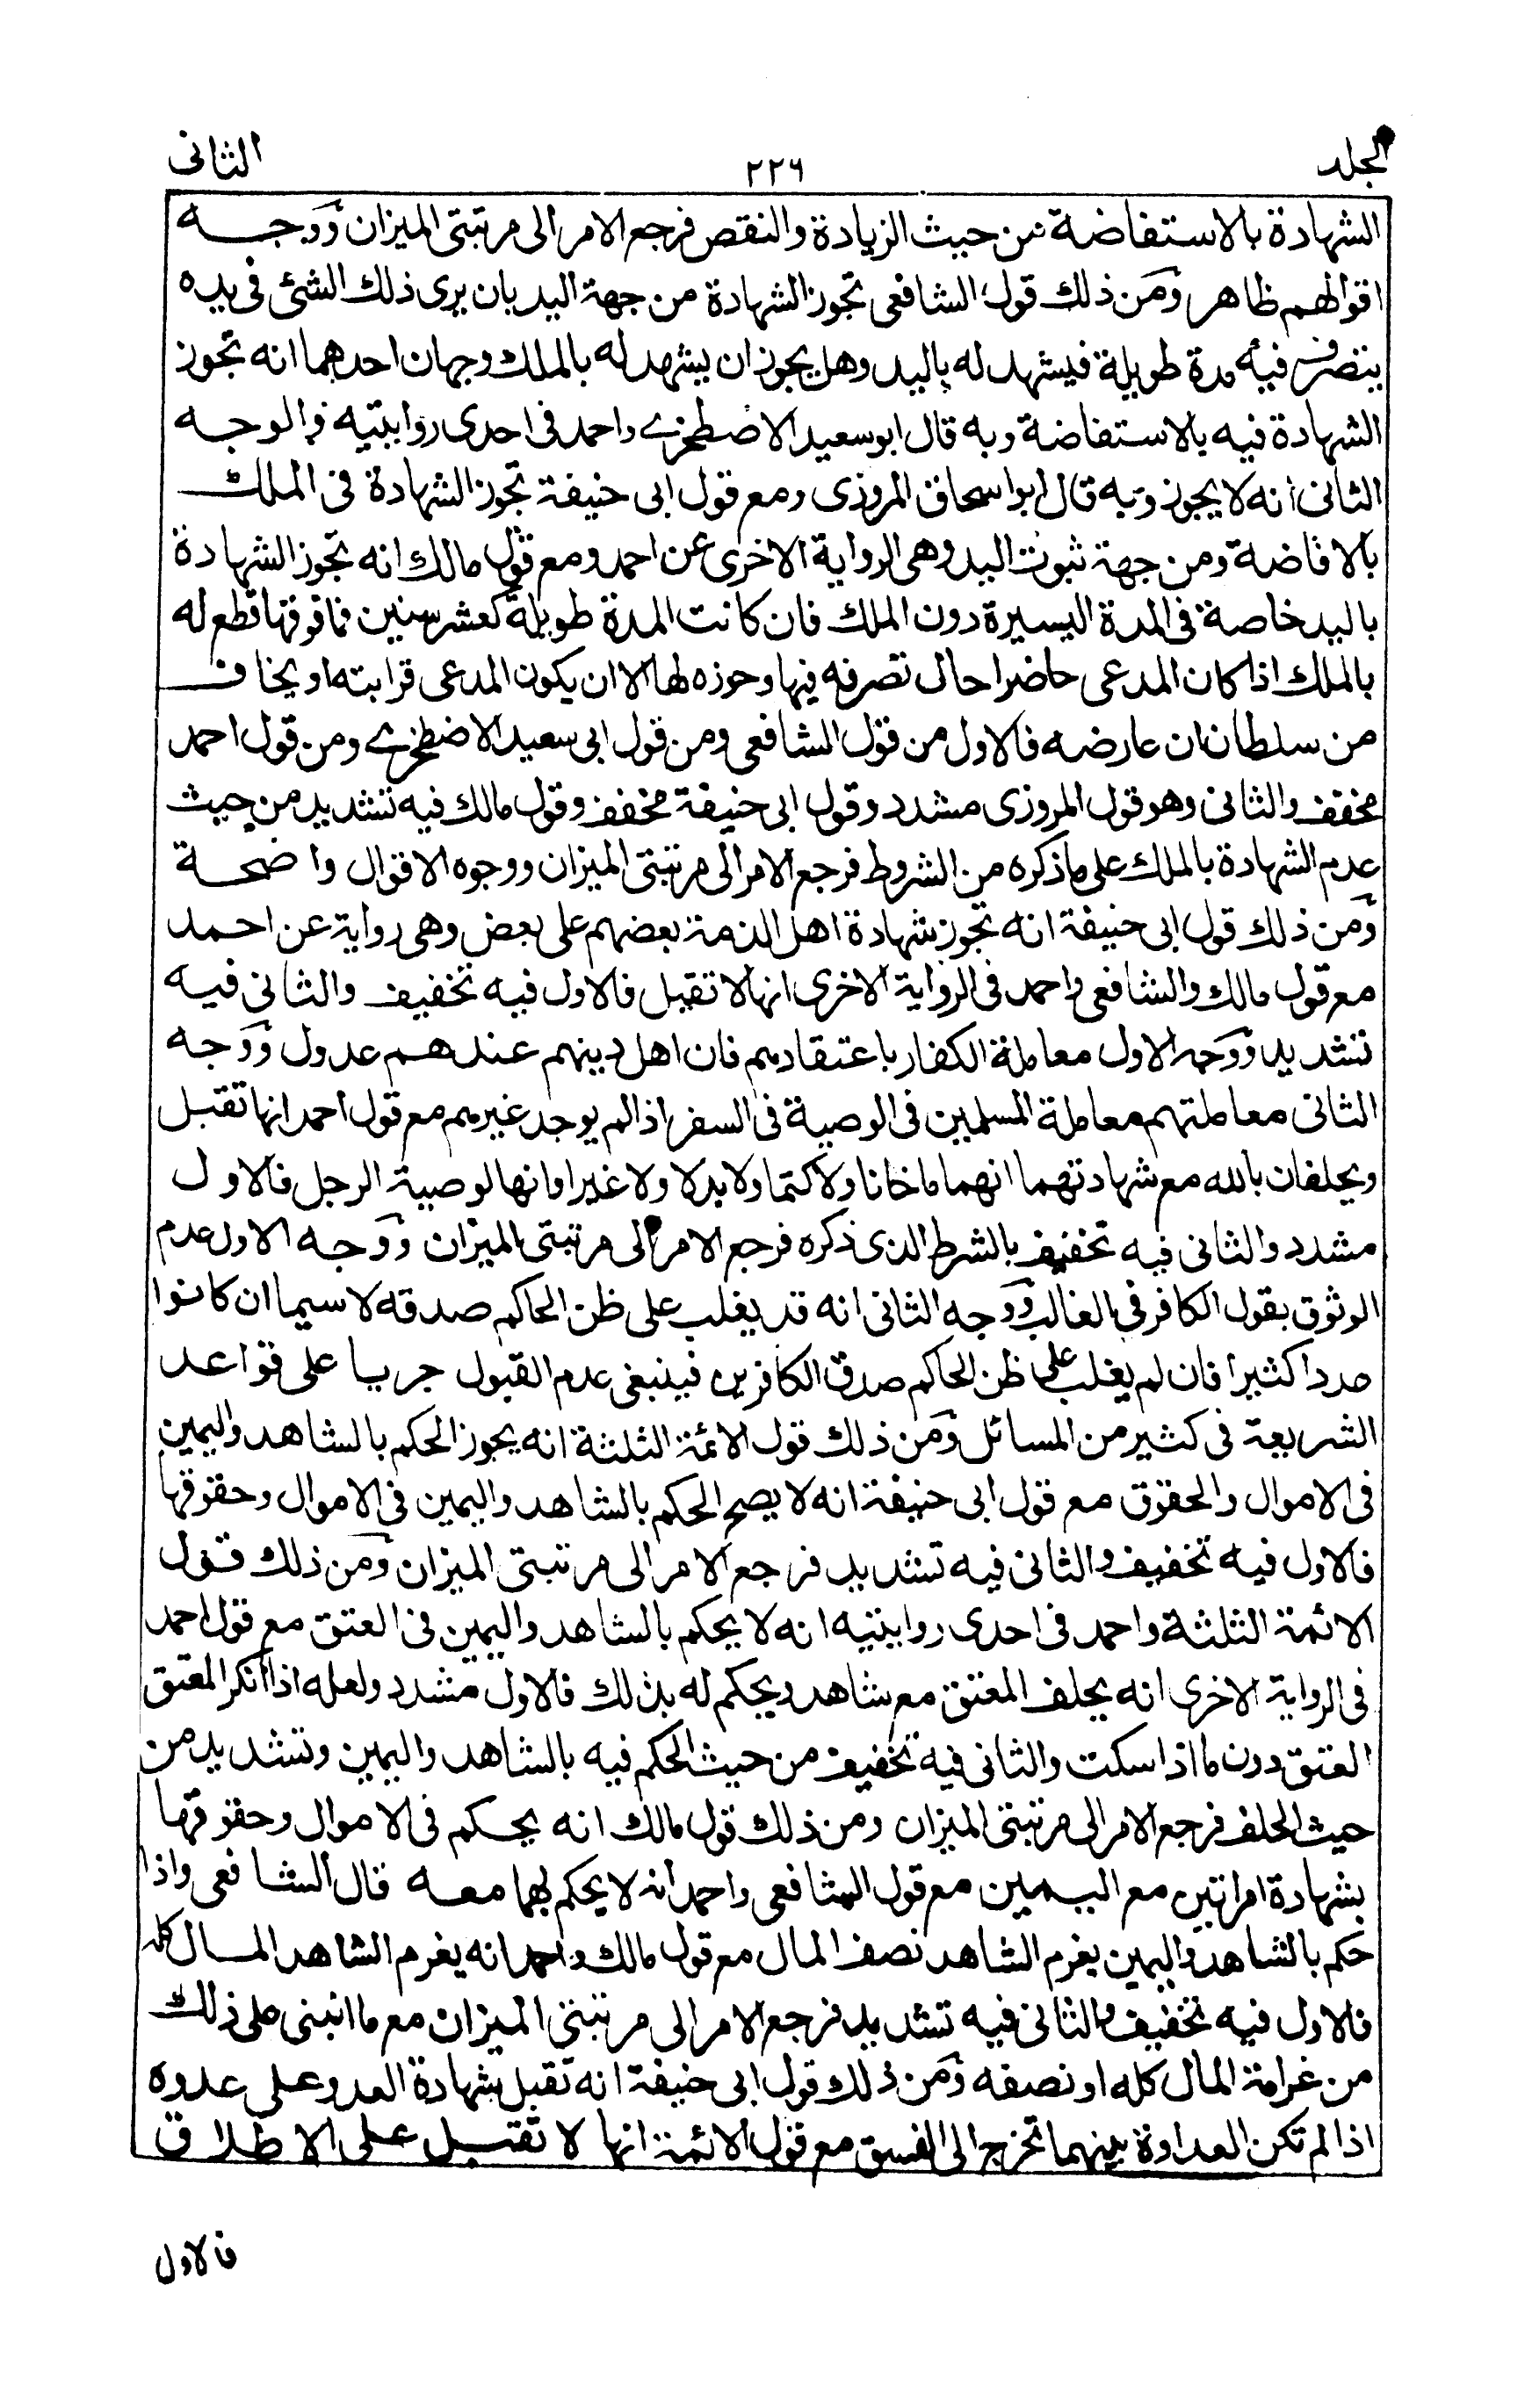 الجلد
٢٢٦
الثانى
الشهادة بالاستفاضة من حيث الزيادة والنقص فرجع الامر الى مرتبتى الميزان ووجه
اقوالهم ظاهر ومن ذلك قول الشافعى تجوز الشهادة من جهة اليد بان يرى ذلك الشئ فى يده
يتصرف فيه مدة طويلة فيشهد له باليد وهل يجوز ان يشهد له بالملك وجهان احدهما انه تجوز
الشهادة فيه بالاستفاضة وبه قال ابو سعيد الاصطخرے واحمد فى احدى روايتيه والوجه
الثانى انه لا يجوز وبه قال ابو اسحاق المروزى ومع قول ابى حنيفة تجوز الشهادة فى الملك
بالافاضة ومن جهة ثبوت اليد وهى الرواية الاخرى عن احمد ومع قول مالك انه تجوز الشهادة
باليد خاصة فى المدة اليسيرة دون الملك فان كانت المدة طويلة كعشر سنين فما فوقها قطع له
بالملك اذا كان المدعى حاضرا حال تصرفه فيها وحوزه لها الا ان يكون المدعى قرابته او يخاف
من سلطان ان عارضه فالاول من قول الشافعى ومن قول ابى سعيد الاصطخرے ومن قول احمد
مخفف والثانى وهو قول المروزى مشدد وقول ابى حنيفة مخفف وقول مالك فيه تشديد من حيث
عدم الشهادة بالملك على ما ذكره من الشروط فرجع الامر الى مرتبتى الميزان ووجوه الاقوال واضحة
ومن ذلك قول ابى حنيفة انه تجوز شهادة اهل الذمة بعضهم على بعض وهى رواية عن احمد
مع قول مالك والشافعى واحمد فى الرواية الاخرى انها لا تقبل فالاول فيه تخفيف والثانى فيه
تشديد ووجه الاول معاملة الكفار باعتقادهم فان اهل دينهم عندهم عدول ووجه
الثانى معاملتهم معاملة المسلمين فى الوصية فى السفر اذا لم يوجد غيرهم مع قول احمد انها تقبل
ويحلفان بالله مع شهادتهما انهما ما خانا ولا كتما ولا بدلا ولا غيرا وانها لوصية الرجل فالاول
مشدد والثانى فيه تخفيف بالشرط الذى ذكره فرجع الامر الى مرتبتى الميزان ووجه الاول عدم
الوثوق بقول الكافر فى الغالب ووجه الثانى انه قد يغلب على ظن الحاكم صدقه لا سيما ان كانوا
عددا كثيرا فان لم يغلب على ظن الحاكم صدق الكافرين فينبغى عدم القبول جريا على قواعد
الشريعة فى كثير من المسائل ومن ذلك قول الائمة الثلثة انه يجوز الحكم بالشاهد واليمين
فى الاموال والحقوق مع قول ابى حنيفة انه لا يصح الحكم بالشاهد واليمين فى الاموال وحقوقها
فالاول فيه تخفيف والثانى فيه تشديد فرجع الامر الى مرتبتى الميزان ومن ذلك قول
الائمة الثلثة واحمد فى احدى روايتيه انه لا يحكم بالشاهد واليمين فى العتق مع قول احمد
فى الرواية الاخرى انه يحلف المعتق مع شاهد ويحكم له بذلك فالاول مشدد ولعله اذا انكر المعتق
العتق دون ما اذا سكت والثانى فيه تخفيف من حيث الحكم فيه بالشاهد واليمين وتشديد من
حيث الحلف فرجع الامر الى مرتبتى الميزان ومن ذلك قول مالك انه يحكم فى الاموال وحقوقها
بشهادة امراتين مع اليمين مع قول الشافعى واحمد انه لا يحكم بهما معه قال الشافعى واذا
حكم بالشاهد واليمين يغرم الشاهد نصف المال مع قول مالك واحمد انه يغرم الشاهد المال كله
فالاول فيه تخفيف والثانى فيه تشديد فرجع الامر الى مرتبتى الميزان مع ما انبنى على ذلك
من غرامة المال كله او نصفه ومن ذلك قول ابى حنيفة انه تقبل شهادة العدو على عدوه
اذا لم تكن العداوة بينهما تخرج الى الفسق مع قول الائمة انها لا تقبل على الاطلاق
فالاول